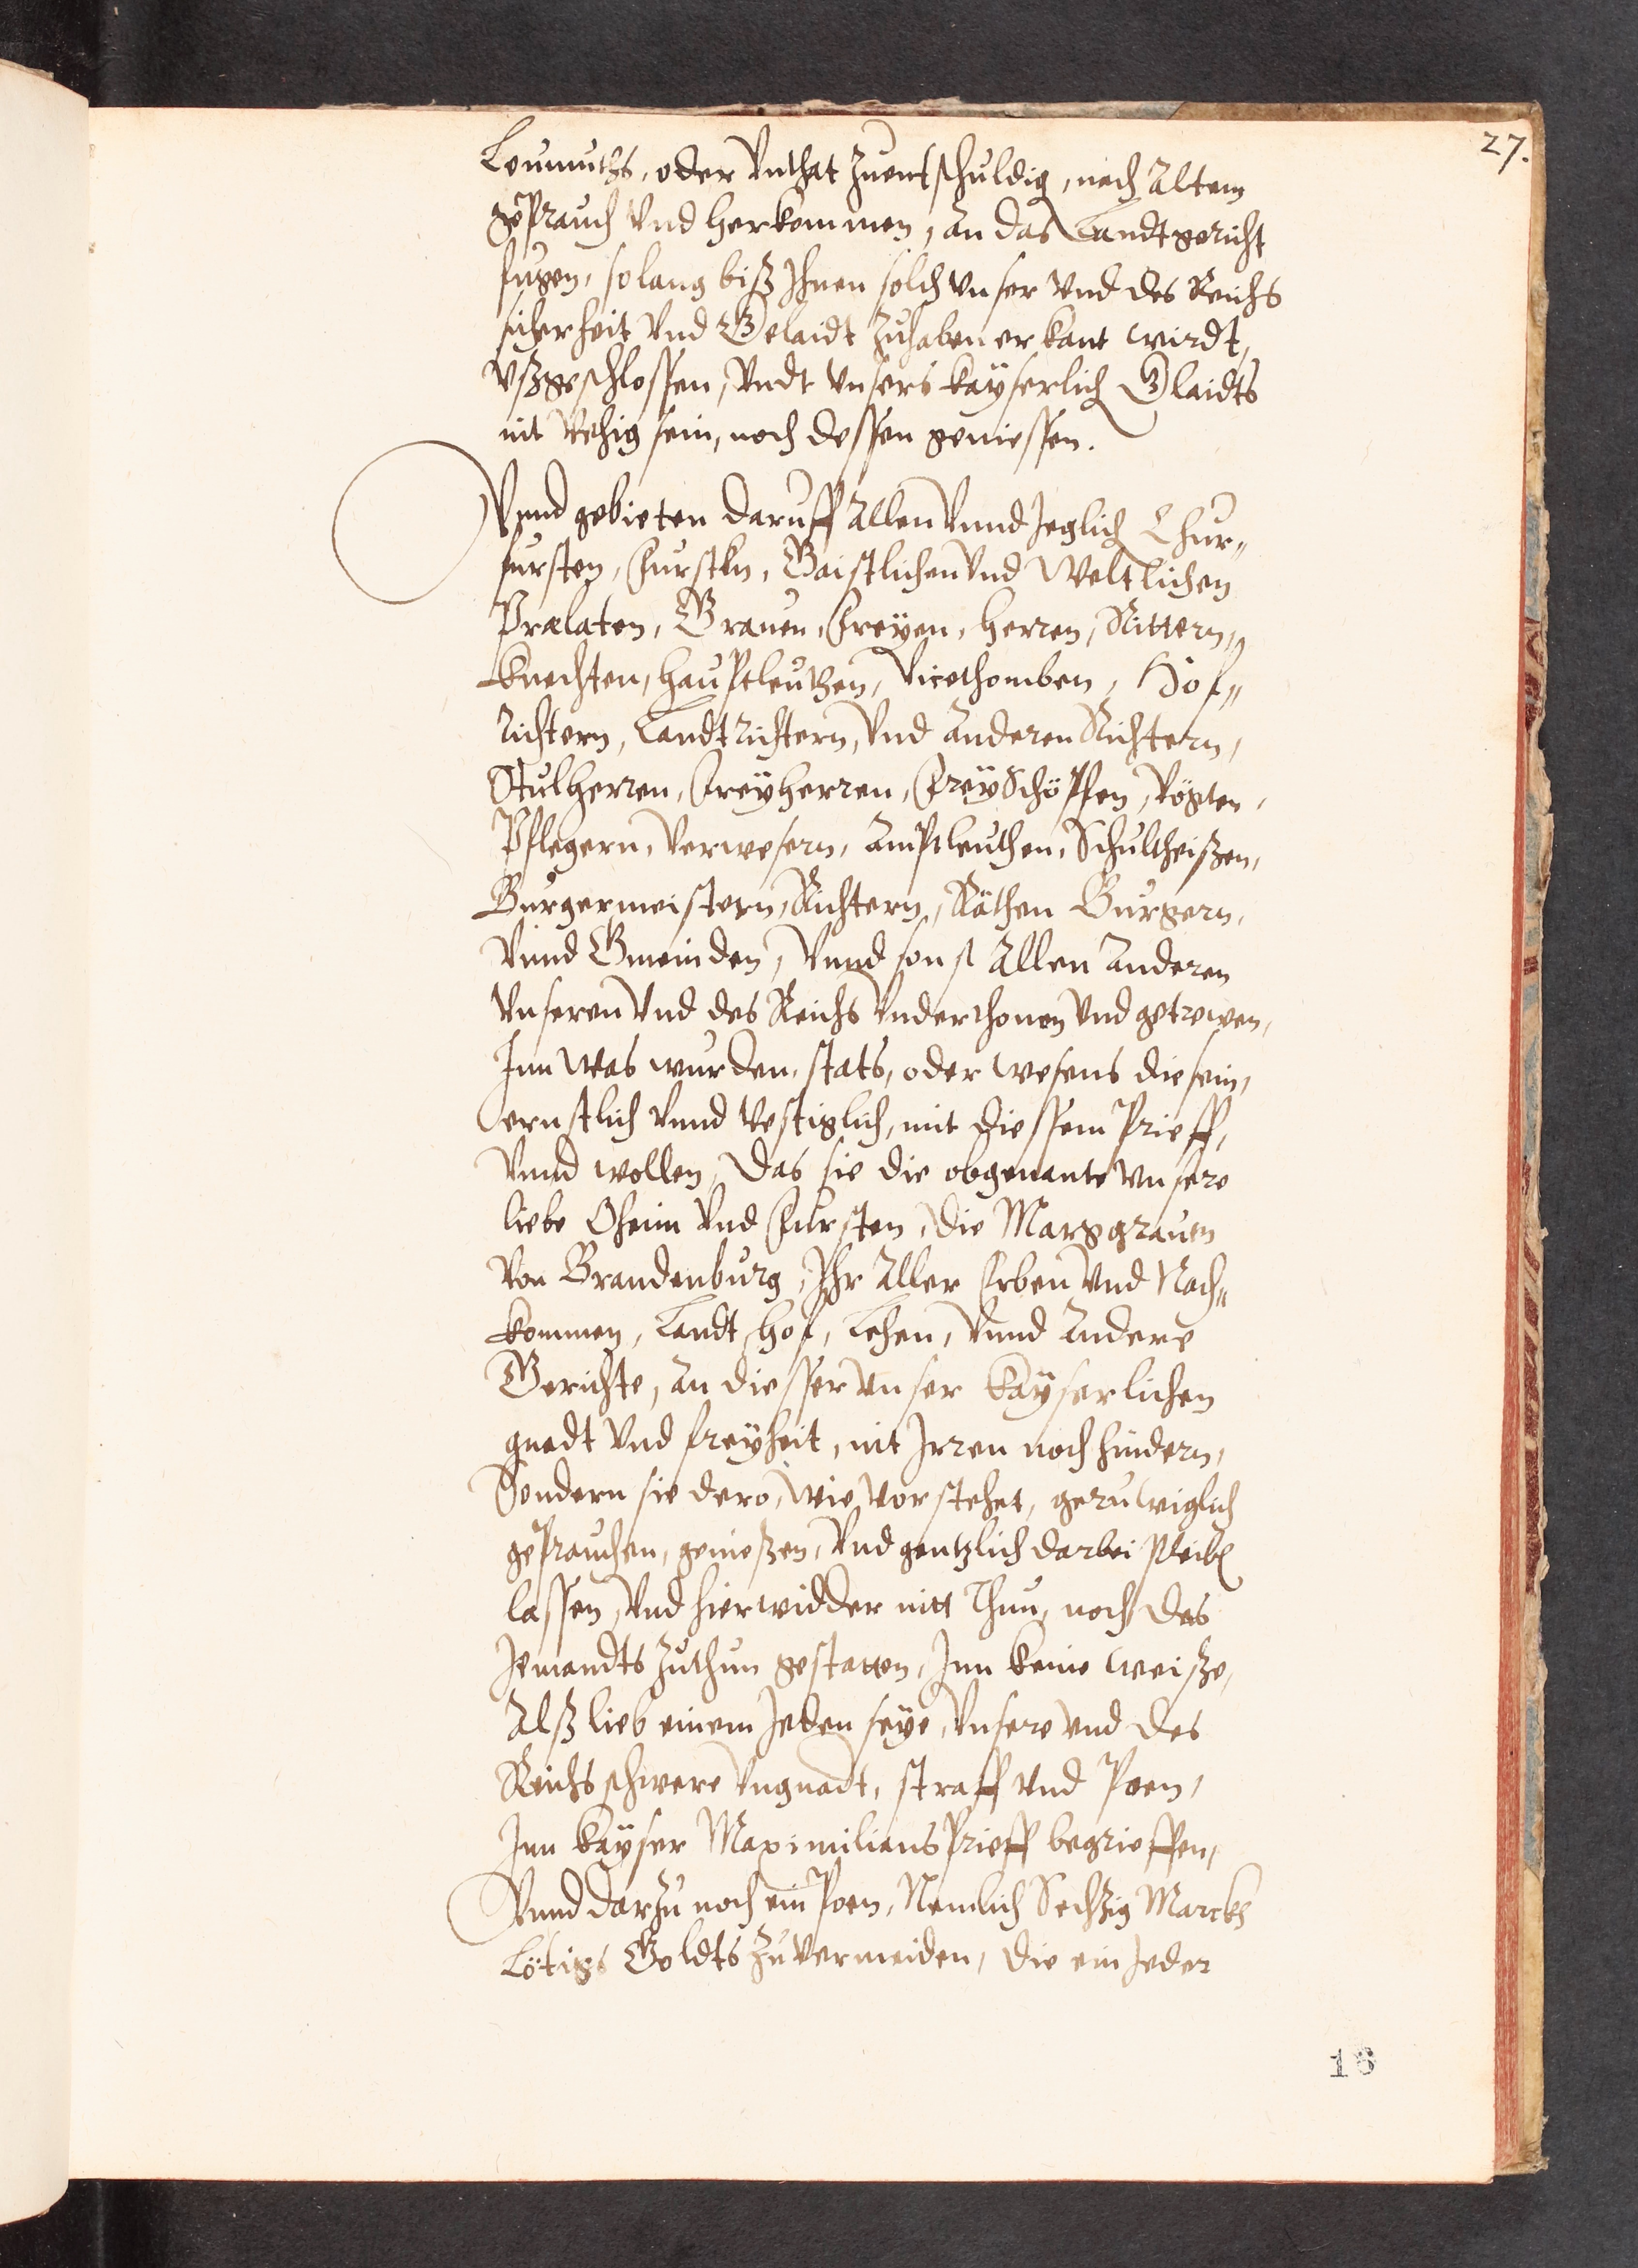 27.
Leumuths, oder Unthat zuentschuldig, nach altem
geprauch Vnd herkommen, an das Landtgericht
fugen, solang biß Ihnen solch vnser vnd des Reichs
sicherheit vnd Gelaidt zuhaben erkant wirdt,
vßgeschlossen, Vndt vnsers kayserlich Glaidts
nit vehig sein, noch dessen geniessen.
Vnnd gebieten daruff allen Vnnd Jeglich Chur„
fursten, Fursten, Gaistlichen Vnd Weltlichen
Prælaten, Grauen, Freyen, Herren, Rittern,
Knechten, Hauptleutten, Vicethomben, Hof„
Richtern, Landtrichtern, Vnd anderen Richtern,
Stulherren, Freyherren, Freyschöpfen, Vögten,
Pflegern, Verwesern, Amptleuthen, Schultheißen,
Burgermeistern, Richtern, Räthen Burgern,
Vnnd Gmeinden, Vnnd sonst allen anderen
Vnseren Vnd des Reichs Vnderthonen Vnd getrewen,
Inn was wurden, stats, oder wesens die sein,
ernstlich Vnnd Vestiglich, mit diessem Prieff,
Vnnd wollen, das sie die obgenante Vnsere
liebe Oheim Vnd Fursten, die Marggrauen
Von Brandenburg, Ihr aller Erben Vnd Nach„
kommen, Landt, Hof, Lehen, Vnnd andere
Gerichte, an diesser vnser kayserlichen
gnadt Vnd freyheit, nit Irren noch hindern,
Sondern sie dero, wie vorstehet, geruwiglich
geprauchen, genießen, Vnd gentzlich darbei pleiben
lassen, Vnd hierwidder nitt thun, noch das
Jemandts zuthun gestatten, Inn keine weiße,
Alß lieb einem Jeden seye, Vnsere vnd des
Reichs schwere Vngnadt, straff vnd Poen,
Inn kayser Maximilians Prieff begrieffen,
Vnnd darzu noch ein Poen, Nemlich Sechzig Marckh
Lötigs Goldts zuvermeiden, die ein Jeder
16